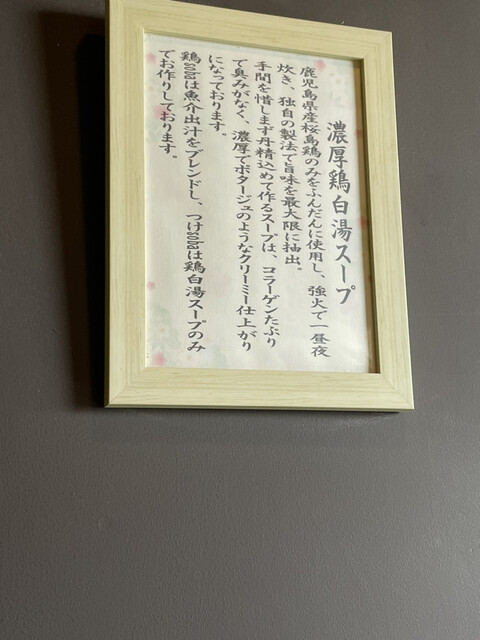 濃厚鶏白湯スープ
鹿児島県産桜島鶏のみをふんだんに使用し、強火で一昼夜
炊き、独自の製法で旨味を最大限に抽出。
手間を惜しまず丹精込めて作るスープは、コラーゲンたぷり
で臭みがなく、濃厚でポタージュのようなクリーミー仕上がり
になっております。
鶏sobaは魚介出汁をブレンドし、つけsobaは鶏白湯スープのみ
でお作りしております。